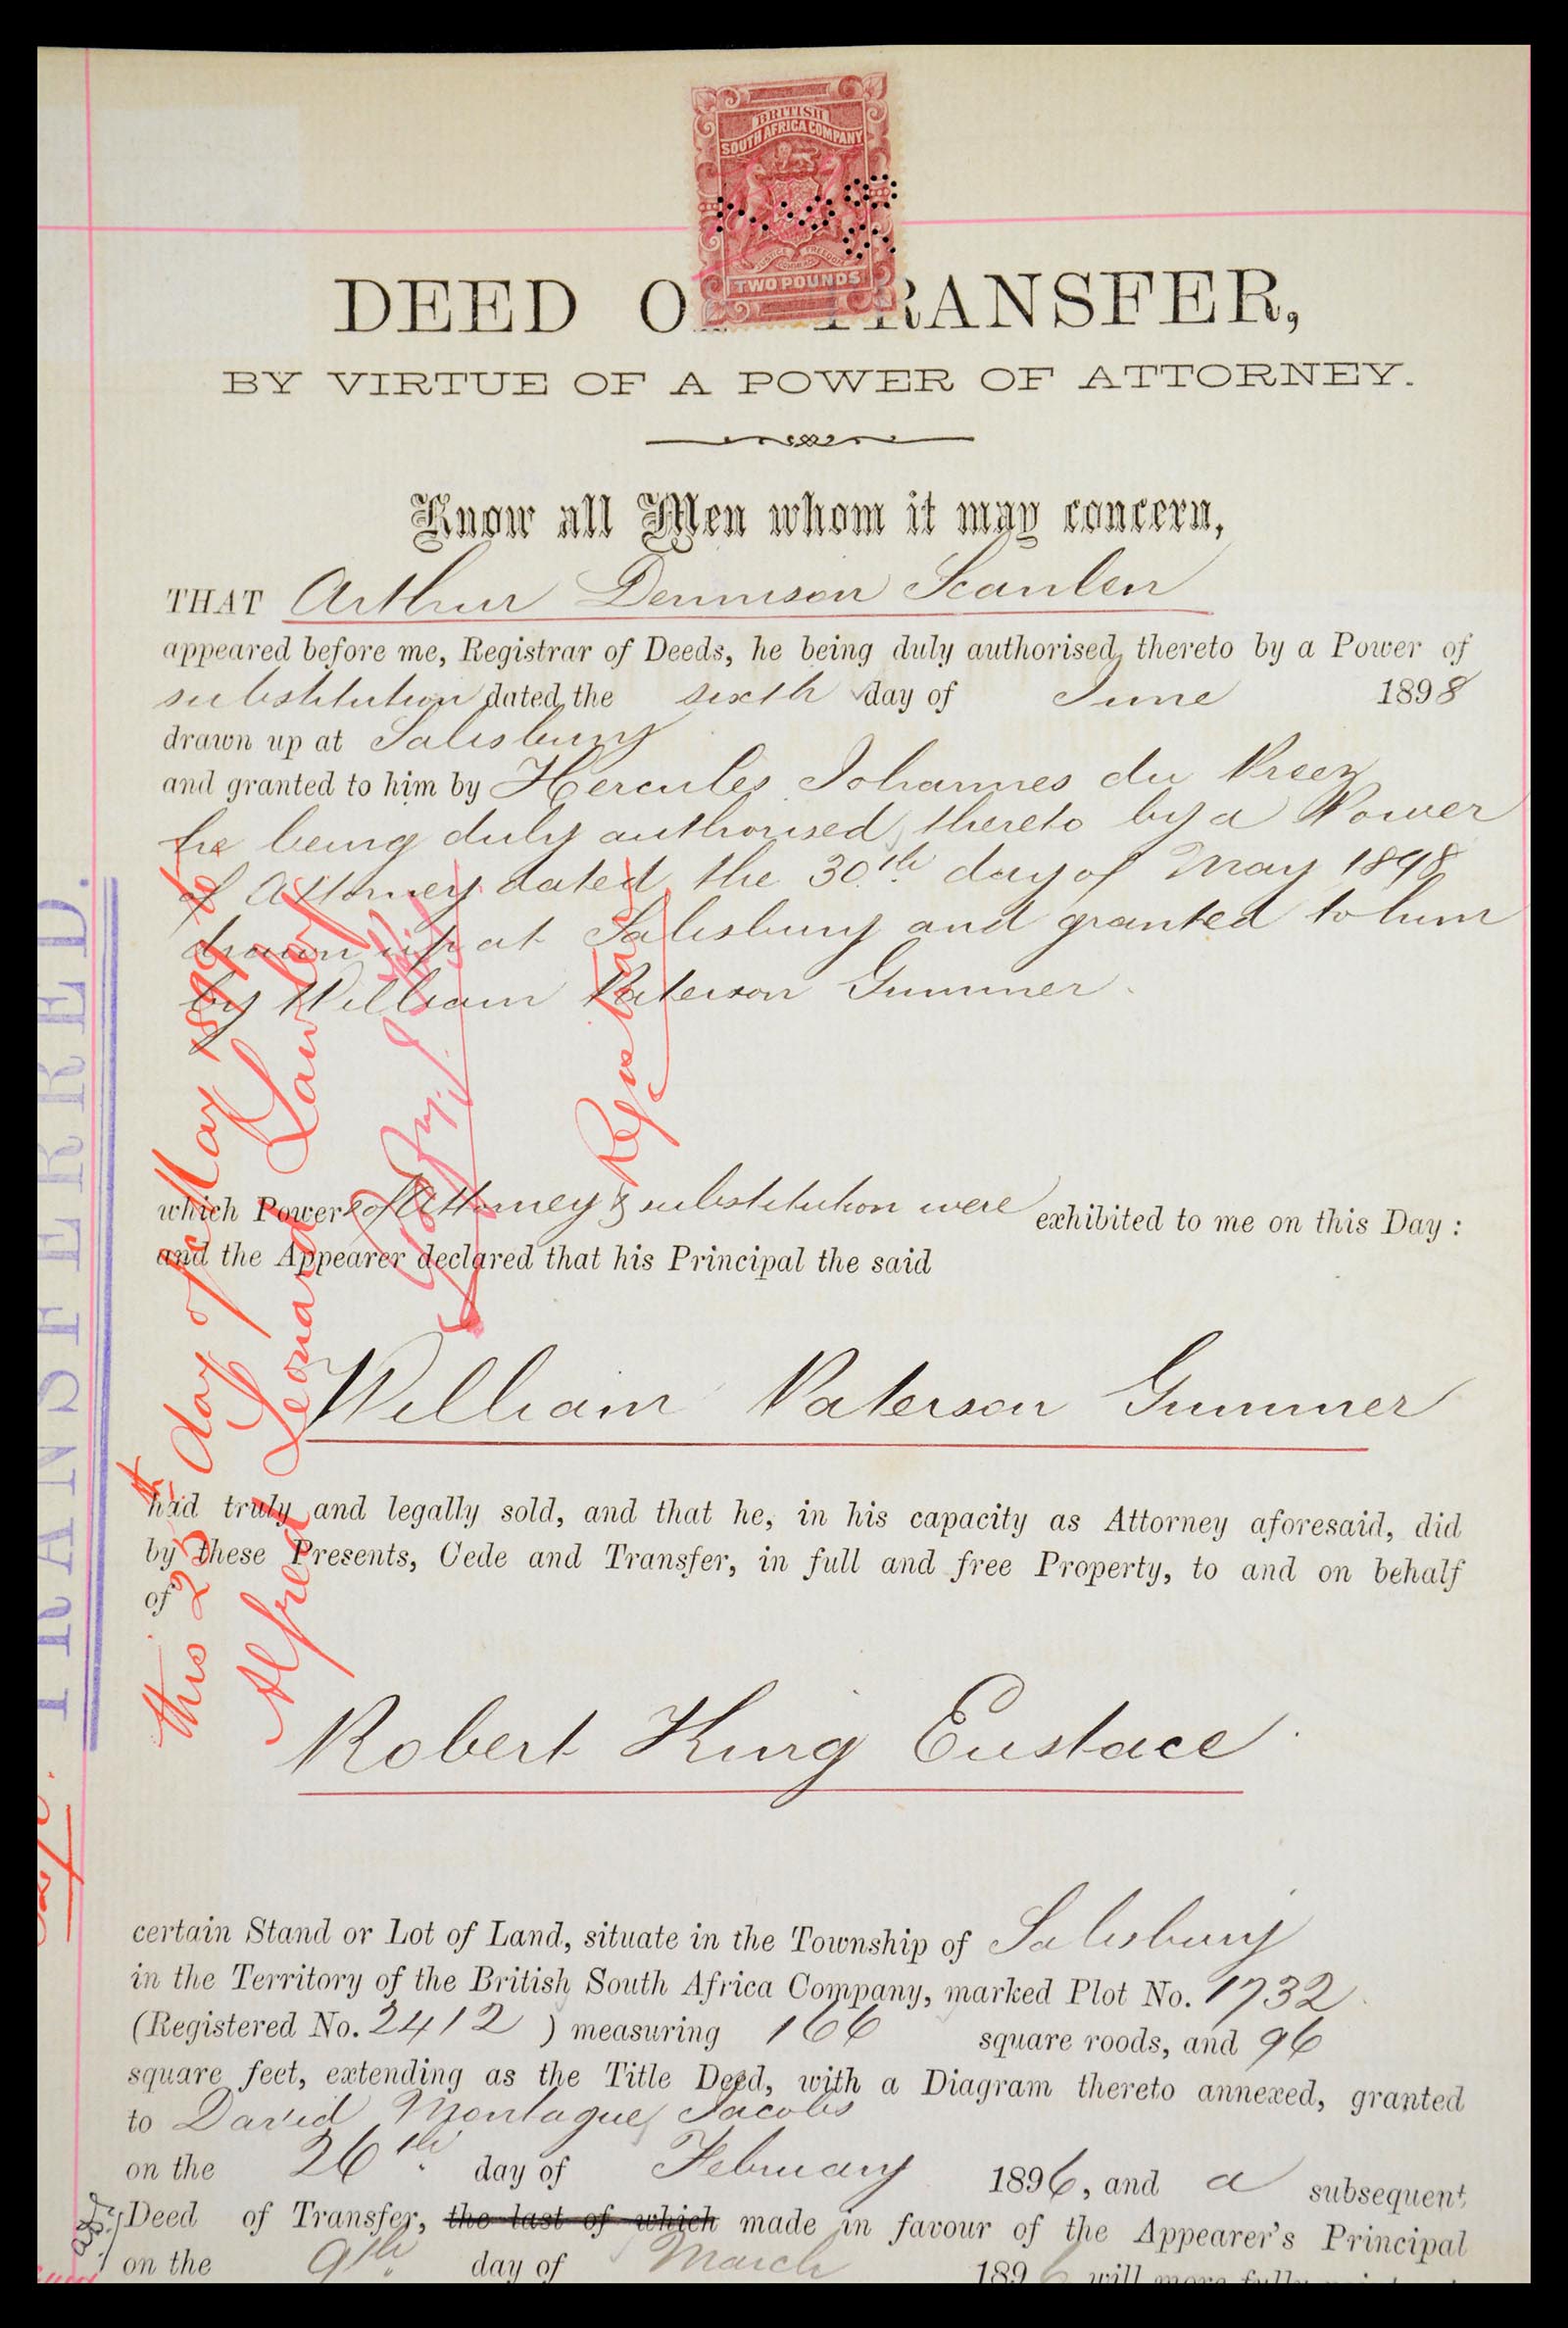 BRITISH
SOUTH AFRICA COMPANY
JUSTICE FREEDOM
TWO POUNDS
DEED O TRANSFER,
BY VIRTUE OF A POWER OF ATTORNEY.
Know all Men whom it may concern,
THAT Arthur Dennison Scanlen
appeared before me, Registrar of Deeds, he being duly authorised thereto by a Power of
substitution dated the sixth day of June 1898
drawn up at Salisbury
and granted to him by Hercules Johannes du Preez
he being duly authorised thereto by a Power
of Attorney dated the 30th day of May 1898
drawn up at Salisbury and granted to him
by William Paterson Gummer.
which Powers of Attorney & substitution were exhibited to me on this Day :
and the Appearer declared that his Principal the said
William Paterson Gummer
had truly and legally sold, and that he, in his capacity as Attorney aforesaid, did
by these Presents, Cede and Transfer, in full and free Property, to and on behalf
of
Robert King Eustace
certain Stand or Lot of Land, situate in the Township of Salisbury
in the Territory of the British South Africa Company, marked Plot No. 1732
(Registered No. 2412 ) measuring 166 square roods, and 96
square feet, extending as the Title Deed, with a Diagram thereto annexed, granted
to David Montague Jacobs
on the 26th day of February 1896, and a subsequent
Deed of Transfer, the last of which made in favour of the Appearer's Principal
on the 9th day of March 1896 will more fully
TRANSFERRED.
this 25th day of May 1899 to
Alfred Leonard Lawley
Registrar